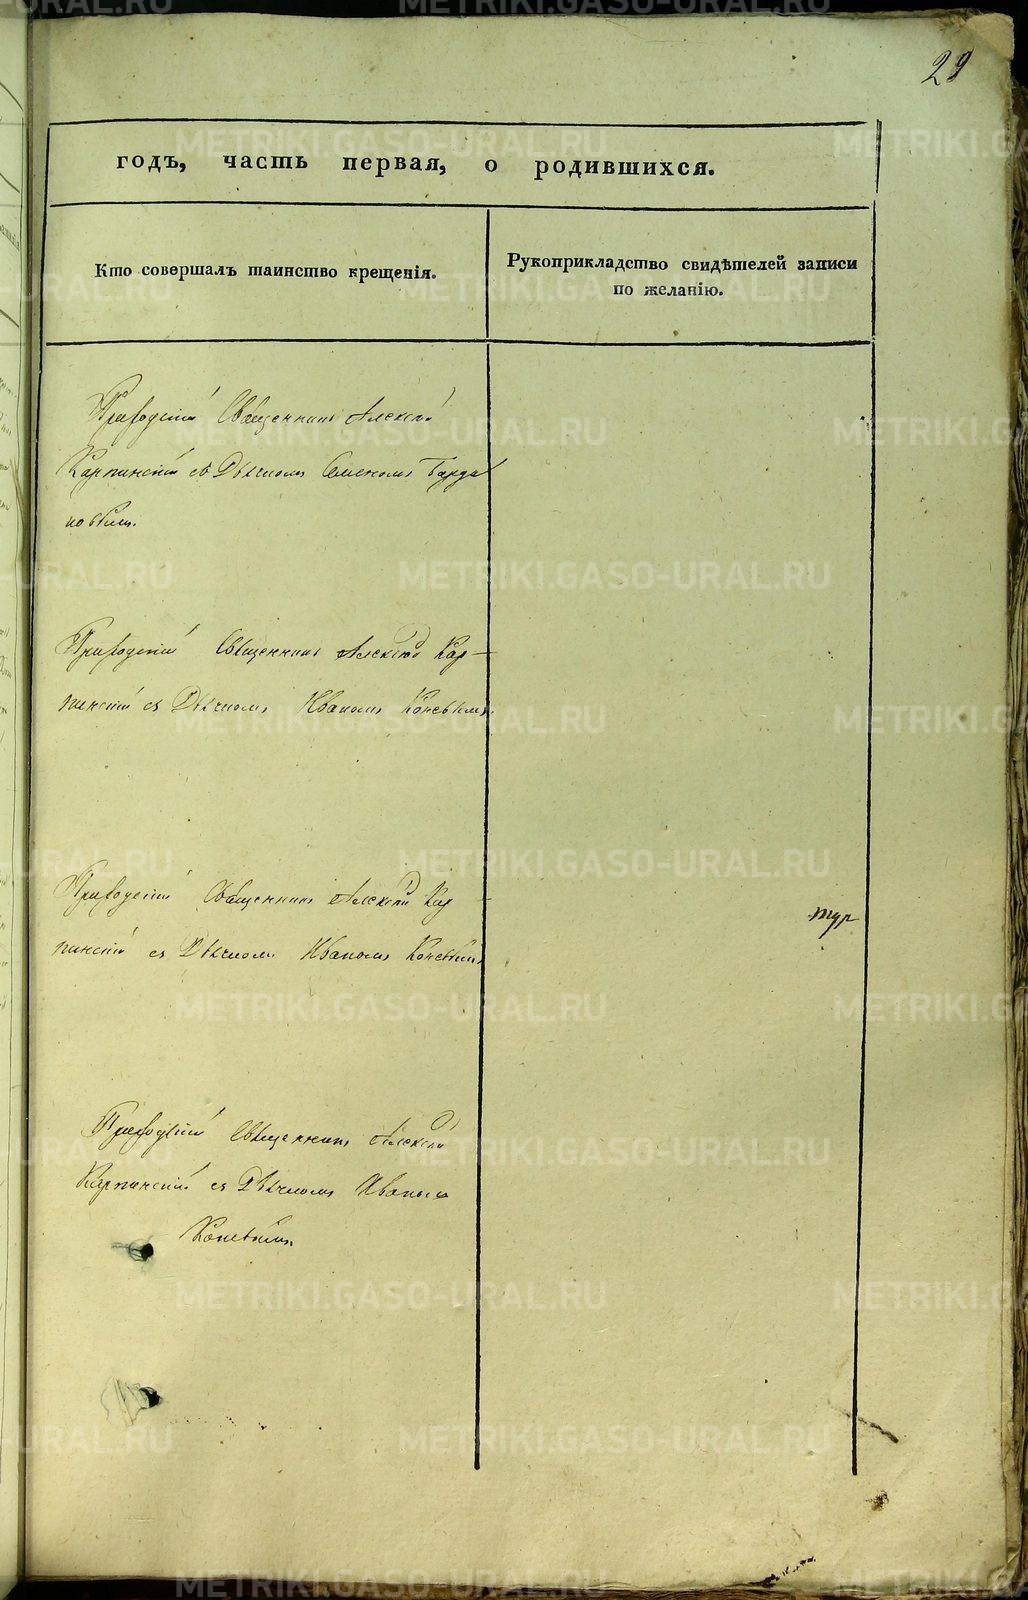 29
годъ, часть первая, о родившихся.
Кто совершалъ таинство крещенія.
Рукоприкладство свидѣтелей записи
по желанію.
Приходскій Священникъ Алексѣй
Карпинскій съ Дьячкомъ Семеномъ
Приходскій Священникъ Алексѣй Кар-
пинскій съ Дьячкомъ Иваномъ Коневымъ
Приходскій Священникъ Алексѣй Кар
пинскій съ Дьячкомъ Иваномъ Коневымъ
Приходскій Священникъ Алексѣй
Карпинскій съ Дьячкомъ Иваномъ
Коневымъ.
METRIKI.GASO-URAL.RU